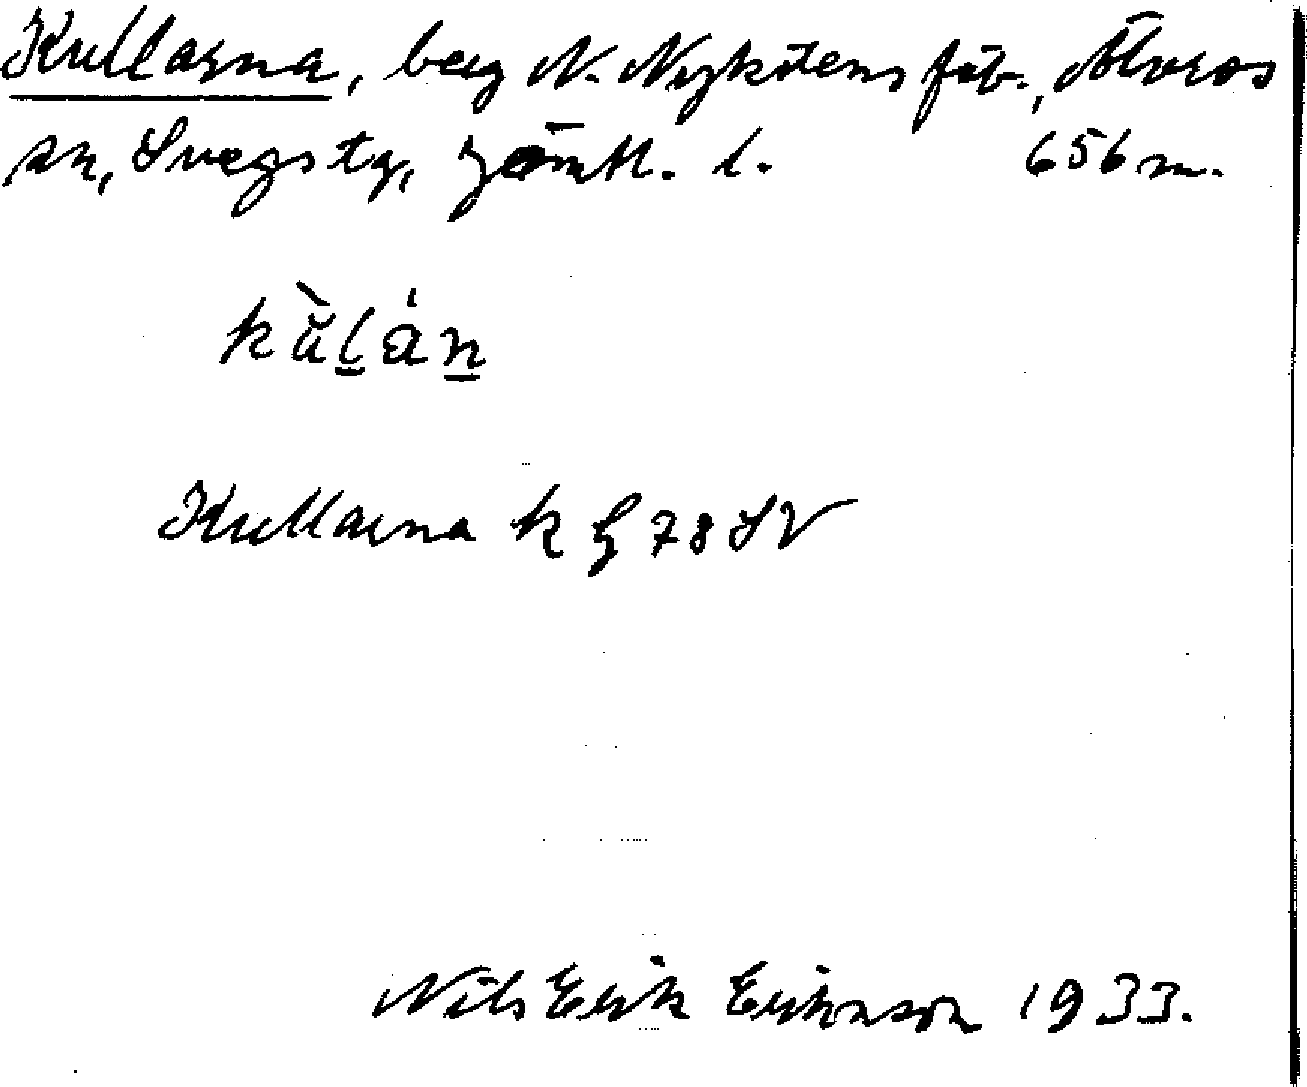 Kullarna, berg N. Nykötens fäb., Älvros
sn, Svegs tg, Jämtl. l. 656 m.
kùlán
Kullarna k G 78 SV
Nils Erik Eriksson 1933.